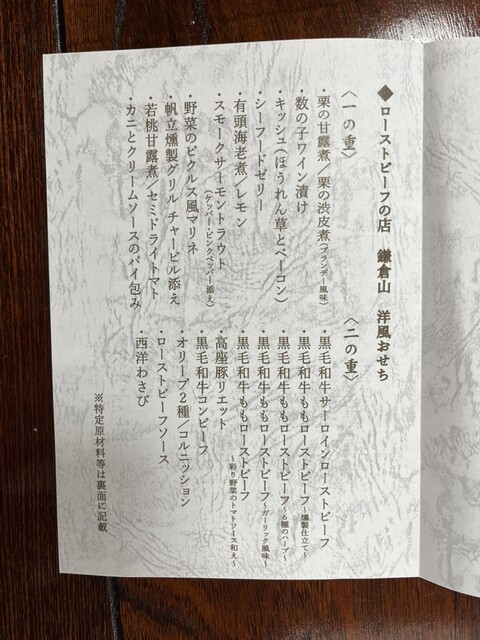 ◆ローストビーフの店 鎌倉山 洋風おせち
〈一の重〉
・栗の甘露煮／栗の渋皮煮(ブランデー風味)
・数の子ワイン漬け
・キッシュ(ほうれん草とベーコン)
・シーフードゼリー
・有頭海老煮／レモン
・スモークサーモントラウト
(ケッパー・ピンクペッパー添え)
・野菜のピクルス風マリネ
・帆立燻製グリル チャービル添え
・若桃甘露煮／セミドライトマト
・カニとクリームソースのパイ包み
〈二の重〉
・黒毛和牛サーロインローストビーフ
・黒毛和牛ももローストビーフ～燻製仕立て～
・黒毛和牛ももローストビーフ～6種のハーブ～
・黒毛和牛ももローストビーフ～ガーリック風味～
・黒毛和牛ももローストビーフ
～彩り野菜のトマトソース和え～
・高座豚リエット
・黒毛和牛コンビーフ
オリーブ2種／コルニッション
・ローストビーフソース
・西洋わさび
※特定原材料等は裏面に記載